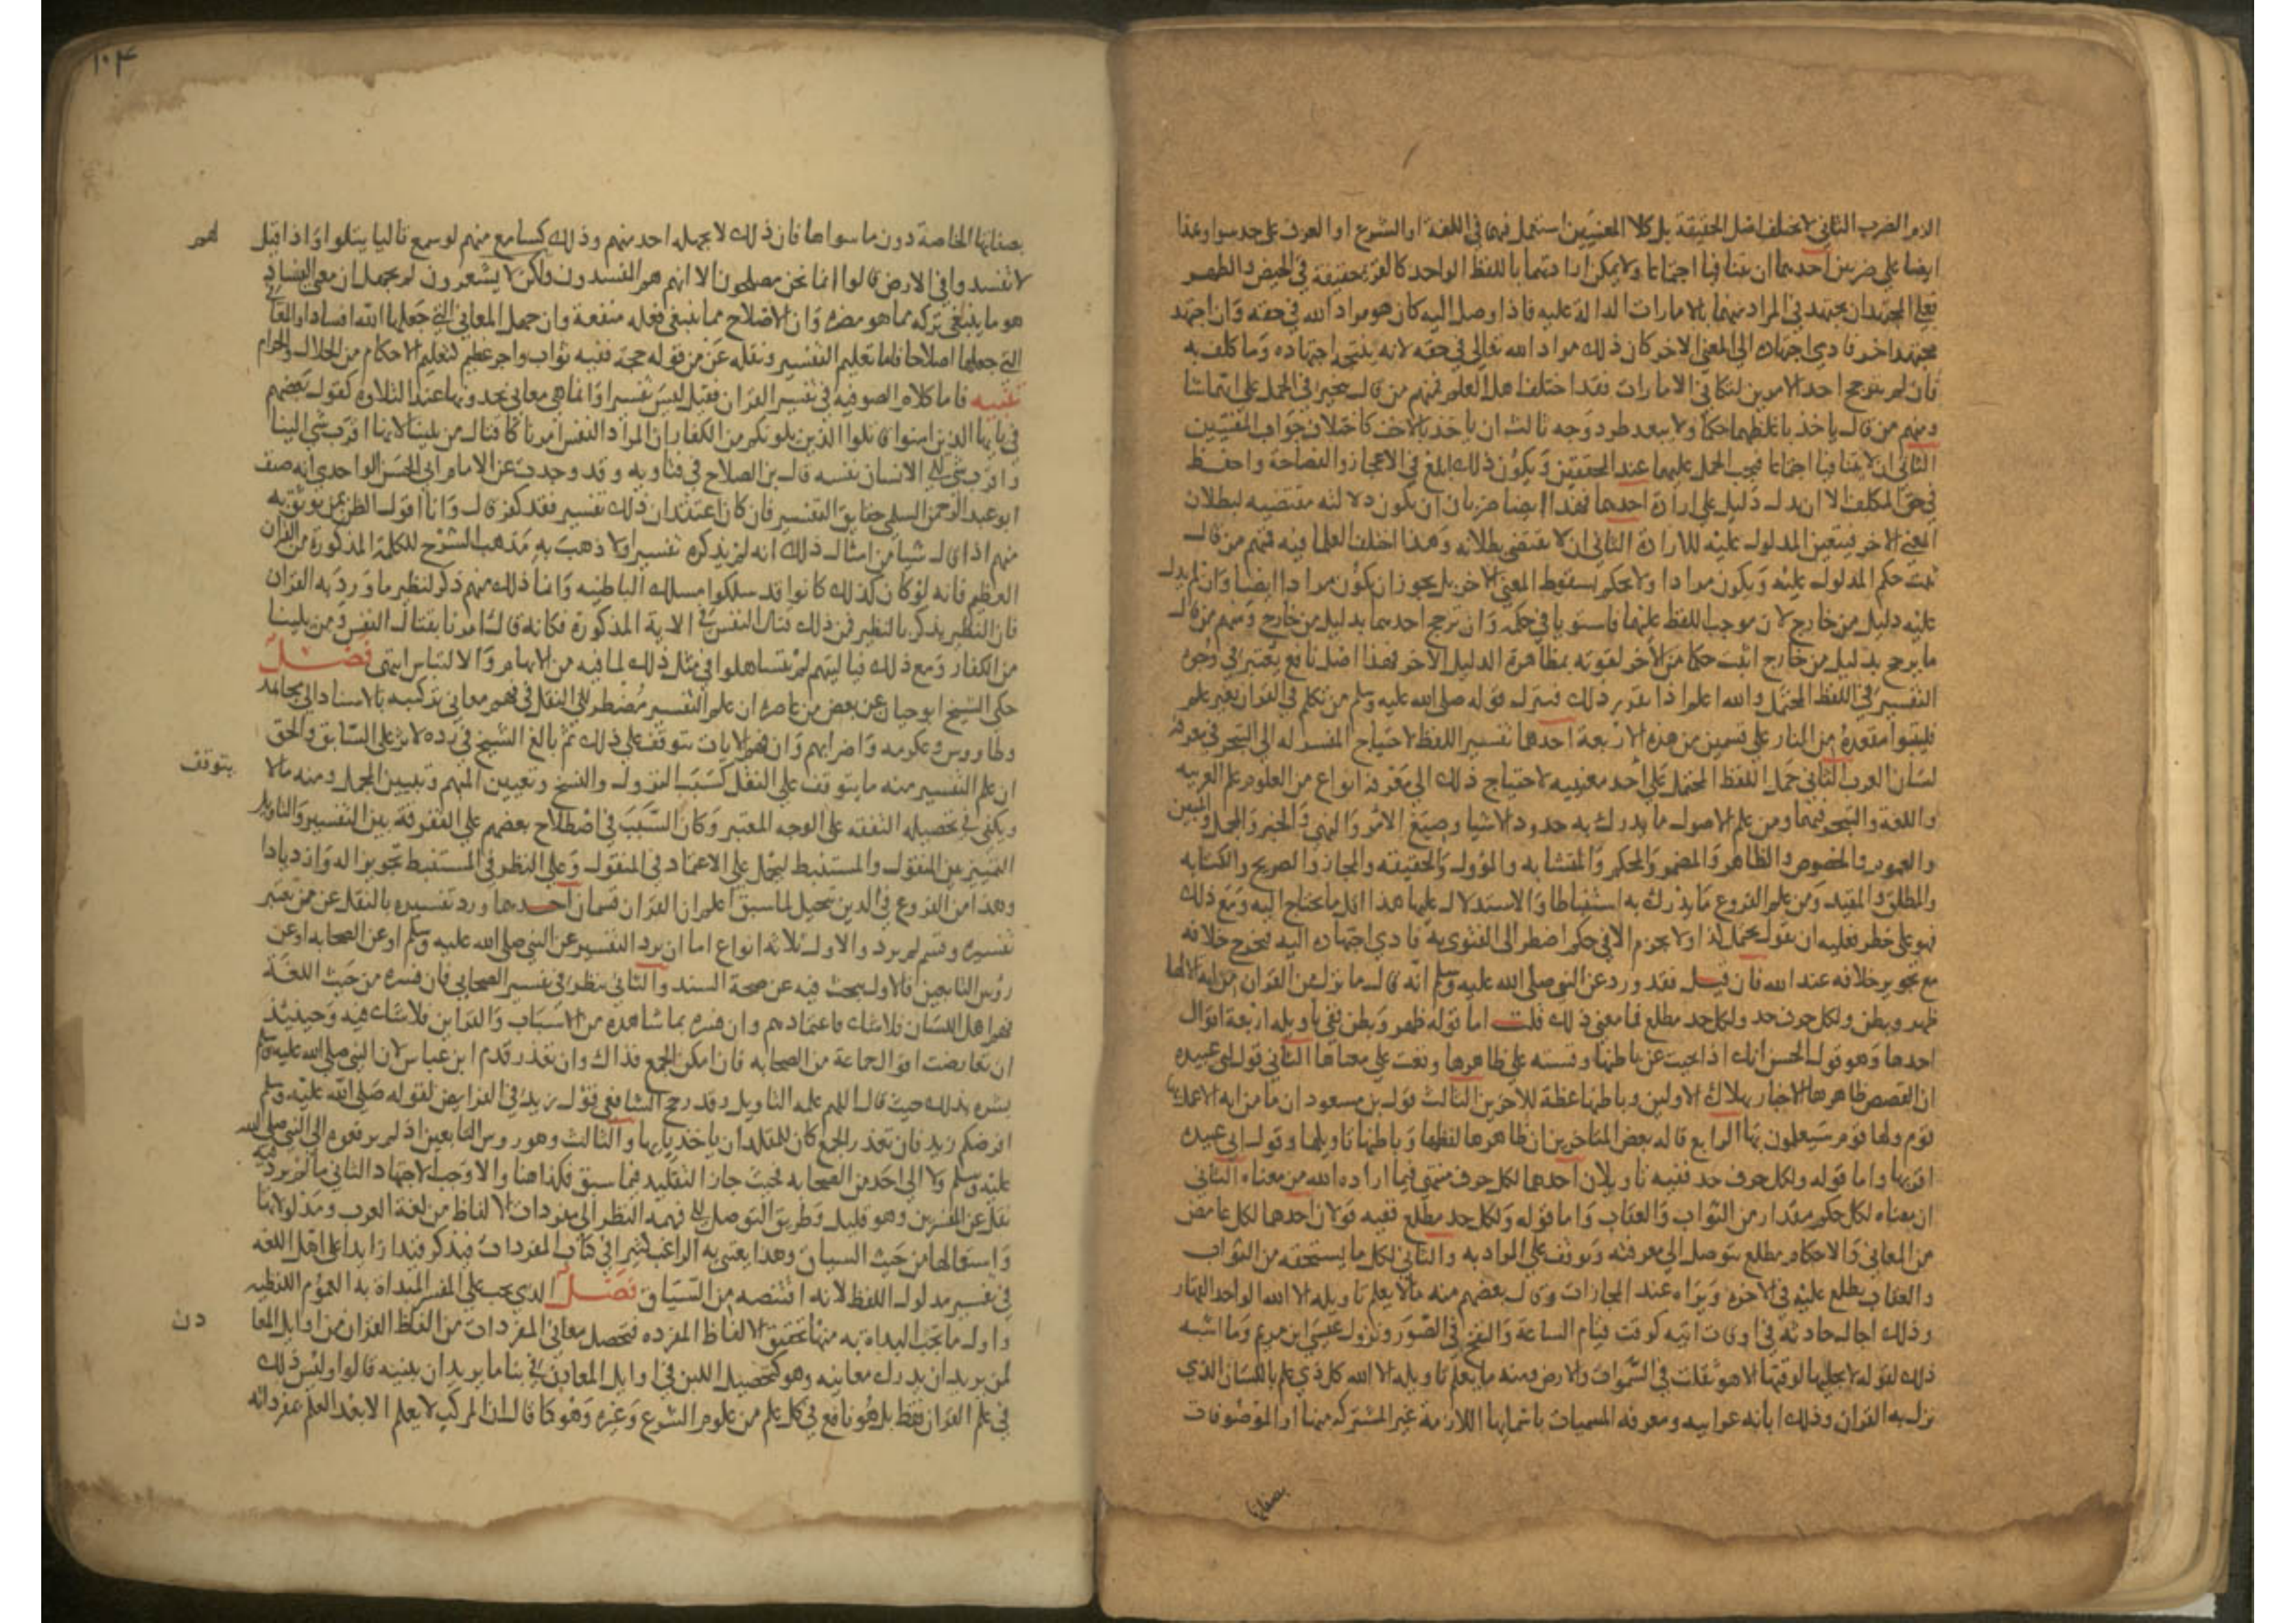 الامر الضرب الثاني لا يختلف اصل الحقيقة بل كلا المعنيين استعمل فيهما في اللغة او الشرع او العرف على حد سوا وهذا
ايضا على ضربين احدهما ان يتنافيا اجتماعا ولا يمكن ارادتهما باللفظ الواحد كالقر حقيقة في الحيض والطهر
فعلى المجتهد ان يجتهد في المراد منهما بالامارات الدالة عليه فاذا وصل اليه كان هو مراد الله في حقه وان اجتهد
مجتهد اخر فادي اجتهاده الى المعنى الاخر كان ذلك مراد الله تعالى في حقه لانه نتيجة اجتهاده وما كلف به
فان لم يترجح احد الامرين لتكافي الامارات فقد اختلف اهل العلم فمنهم من قال يخير في الحمل على ايهما شا
ومنهم من قال ياخذ باغلظهما حكما ولا يبعد طرد وجه ثالث ان ياخذ بالاخف كاختلاف جواب المفتيين
الثاني ان لا يتنافيا اجتماعا فيجب الحمل عليهما عند المحققين ويكون ذلك ابلغ في الاعجاز والفصاحة واحفظ
في حق المكلف الا ان يدل دليل على ارادة احدهما فهذا ايضا ضربان ان يكون دلالته مقتضيه لبطلان
المعنى الاخر فيتعين المدلول عليه للارادة الثاني ان لا يقتضي بطلانه وهذا اختلف العلما فيه فمنهم من قال
يثبت حكم المدلول عليه ويكون مرادا ولا يحكم بسقوط المعنى الاخر بل يجوز ان يكون مرادا ايضا وان لم يدل
عليه دليل من خارج لان موجب اللفظ عليهما فاستويا في حكمه وان ترجح احدهما بدليل من خارج ومنهم من قال
ما يرجح بدليل من خارج اثبت حكما من الاخر لقوته بمظاهرة الدليل الاخر فهذا اصل نافع يعتبر في وجوه
التفسير في اللفظ المحتمل والله اعلم اذا تقرر ذلك فينزل قوله صلى الله عليه وسلم من تكلم في القران بغير علم
فليتبوا مقعده من النار على قسمين من هذه الاربعة احدهما تفسير اللفظ لاحتياج المفسر له الى التبحر في معرفة
لسان العرب الثاني حمل اللفظ المحتمل على احد معنييه لاحتياج ذلك الى معرفة انواع من العلوم علم العربيه
واللغة والتبحر فيهما ومن علم الاصول ما يدرك به حدود الاشيا وصيغ الامر والنهي والخبر والمجمل والمبين
والعموم والخصوص والظاهر والمضمر والمحكم والمتشابه والمؤول والحقيقه والمجاز والصريح والكنايه
والمطلق والمقيد ومن علم الفروع ما يدرك به استنباطا والاستدلال عليها هذا اقل ما يحتاج اليه ومع ذلك
فهو على خطر فعليه ان يقول يحتمل كذا ولا يجزم الا في حكم اضطر الى الفتوى به فادي اجتهاده اليه فيخرج خلافه
مع تجويز خلافه عند الله فان قيل فقد ورد عن النبي صلى الله عليه وسلم انه قال ما نزل من القران من ايه الا ولها
ظهر وبطن ولكل حرف حد ولكل حد مطلع فما معنى ذلك قلت اما قوله ظهر وبطن ففي تاويله اربعة اقوال
احدها وهو قول الحسن انك اذا بحثت عن باطنها وقسته على ظاهرها وقعت على معناها الثاني قول ابي عبيده
ان القصص ظاهرها الاخبار بهلاك الاولين وباطنها عظة للاخرين الثالث قول بن مسعود ان ما من ايه الا عمل بها
قوم ولها قوم سيعملون بها الرابع قاله بعض المتاخرين ان ظاهرها لفظها وباطنها تاويلها وقول ابي عبيده
اقربها واما قوله ولكل حرف حد ففيه تاويلان احدهما لكل حرف منتهى فيما اراده الله من معناه الثاني
ان معناه لكل حكم مقدار من الثواب والعقاب واما قوله ولكل حد مطلع ففيه قولان احدهما لكل غامض
من المعاني والاحكام مطلع يتوصل الى معرفته ويوقف على المراد به والثاني لكل ما يستحقه من الثواب
والعقاب يطلع عليه في الاخرة ويراه عند المجازات وقال بعضهم منه ما لا يعلم تاويله الا الله الواحد القهار
وذلك اجال حادثة في اوقات اتيه كوقت قيام الساعة والنفخ في الصور ونزول عيسى ابن مريم وما اشبه
ذلك لقوله لا يجليها لوقتها الا هو ثقلت في السموات والارض ومنه ما يعلم تاويله الا الله كل ذي علم باللسان الذي
نزل به القران وذلك ابانه عرابيه ومعرفه المسميات باسمائها اللازمة غير المشتركة منها او الموصوفات
بصفاتها
١٠٤
بصفاتها الخاصة دون ما سواها فان ذلك لا يجهله احد منهم وذلك كسامع منهم لو سمع تاليا يتلوا واذا قيل لهم
لا تفسدوا في الارض قالوا انما نحن مصلحون الا انهم هم المفسدون ولكن لا يشعرون لم يجهل ان معنى الفساد
هو ما ينبغي تركه مما هو مضره وان الاصلاح مما ينبغي فعله منفعة وان جهل المعاني التي جعلها الله افسادا والمعاني
التي جعلها اصلاحا فاما تعليم التفسير ونقله عن من قوله حجة ففيه ثواب واجر عظيم لتعليم الاحكام من الحلال والحرام
تنبيه فاما كلام الصوفيه في تفسير القران فقيل ليس تفسيرا وانما هي معاني يجدونها عند التلاوة كقول بعضهم
في يا ايها الذين امنوا قاتلوا الذين يلونكم من الكفار ان المراد النفس امرنا كافتال من يلينا لانها اقرب شي الينا
واقرب شي الى الانسان نفسه قال بن الصلاح في فتاويه وقد وجدت عن الامام ابي الحسن الواحدي انه صنف
ابو عبد الرحمن السلمي حقايق التفسير فان كان اعتقد ان ذلك تفسير فقد كفر قال وانا اقول الظن بمن يوثق به
منهم اذا قال شيا من امثال ذلك انه لم يذكره تفسيرا ولا ذهب به مذهب الشرح للكلمة المذكورة من القران
العظيم فانه لو كان كذلك كانوا قد سلكوا مسلك الباطنيه وانما ذلك منهم ذكر لنظير ما ورد به القران
فان النظير يذكر بالنظير فمن ذلك قتال النفس في الاية المذكورة فكانه قال امرنا بقتال النفس ومن يلينا
من الكفار ومع ذلك فياليتهم لم يتساهلوا في مثل ذلك لما فيه من الابهام والالتباس انتهى فصل
حكى الشيخ ابو حيان عن بعض من عاصره ان علم التفسير مضطر الى النقل في فهم معاني تركيبه بالاسناد الى مجاهد
وطاووس وعكرمه واضرابهم وان فهم الايات يتوقف على ذلك ثم بالغ الشيخ في رده لاثر على السابق والحق
ان علم التفسير منه ما يتوقف على النقل كسبب النزول والنسخ وتعيين المبهم وتبيين المجمل ومنه مالا يتوقف
ويكفي في تحصيله التفقه على الوجه المعتبر وكان السبب في اصطلاح بعضهم على التفرقة بين التفسير والتاويل
التمييز بين المنقول والمستنبط ليحمل على الاعتماد في المنقول وعلى النظر في المستنبط تجويزا له وازديادا
وهذا من الفروع في الدين تحيل لما سبق اعلم ان القران قسمان احدهما ورد تفسيره بالنقل عن من يعتبر
تفسيره وقسم لم يرد والاول ثلاثة انواع اما ان يرد التفسير عن النبي صلى الله عليه وسلم او عن الصحابه او عن
رؤس التابعين فالاول يبحث فيه عن صحة السند والثاني ينظر في تفسير الصحابي فان فسره من حيث اللغة
فهم اهل اللسان فلا شك في اعتمادهم وان فسره بما شاهده من الاسباب والقراين فلا شك فيه وحينئذ
ان تعارضت اقوال جماعة من الصحابه فان امكن الجمع فذاك وان تعذر قدم ابن عباس لان النبي صلى الله عليه وسلم
بشره بذلك حيث قال اللهم علمه التاويل وقد رجح الشافعي قول زيد في الفرايض لقوله صلى الله عليه وسلم
افرضكم زيد فان تعذر الجمع كان للمقلد ان ياخذ بايها والثالث وهو روس التابعين اذا لم يرفعوه الى النبي صلى الله
عليه وسلم ولا الى احد من الصحابه فحيث جاز التقليد فيما سبق فكذا هنا والا وجب الاجتهاد الثاني ما لم يرد فيه
نقل عن المفسرين وهو قليل وطريق التوصل الى فهمه النظر الى مفردات الالفاظ من لغة العرب ومدلولاتها
واستعمالها من حيث السياق وهذا يعتني به الراغب كثيرا في كتاب المفردات فيذكر قيدا زايدا على اهل اللغه
في تفسير مدلول اللفظ لانه اقتنصه من السياق فصل الذي يجب على المفسر البداة به العلوم اللفظيه
واول ما يجب البداة به منها تحقيق الالفاظ المفرده فتحصيل معاني المفردات من الفاظ القران من اوايل المعادن
لمن يريد ان يدرك معانيه وهو كتحصيل اللبن في اوايل المعادن في بنا ما يريد ان يبنيه قالوا وليس ذلك
في علم القران فقط بل هو نافع في كل علم من علوم الشرع وغيره وهو كما قال ان المركب لا يعلم الا بعد العلم بمفرداته